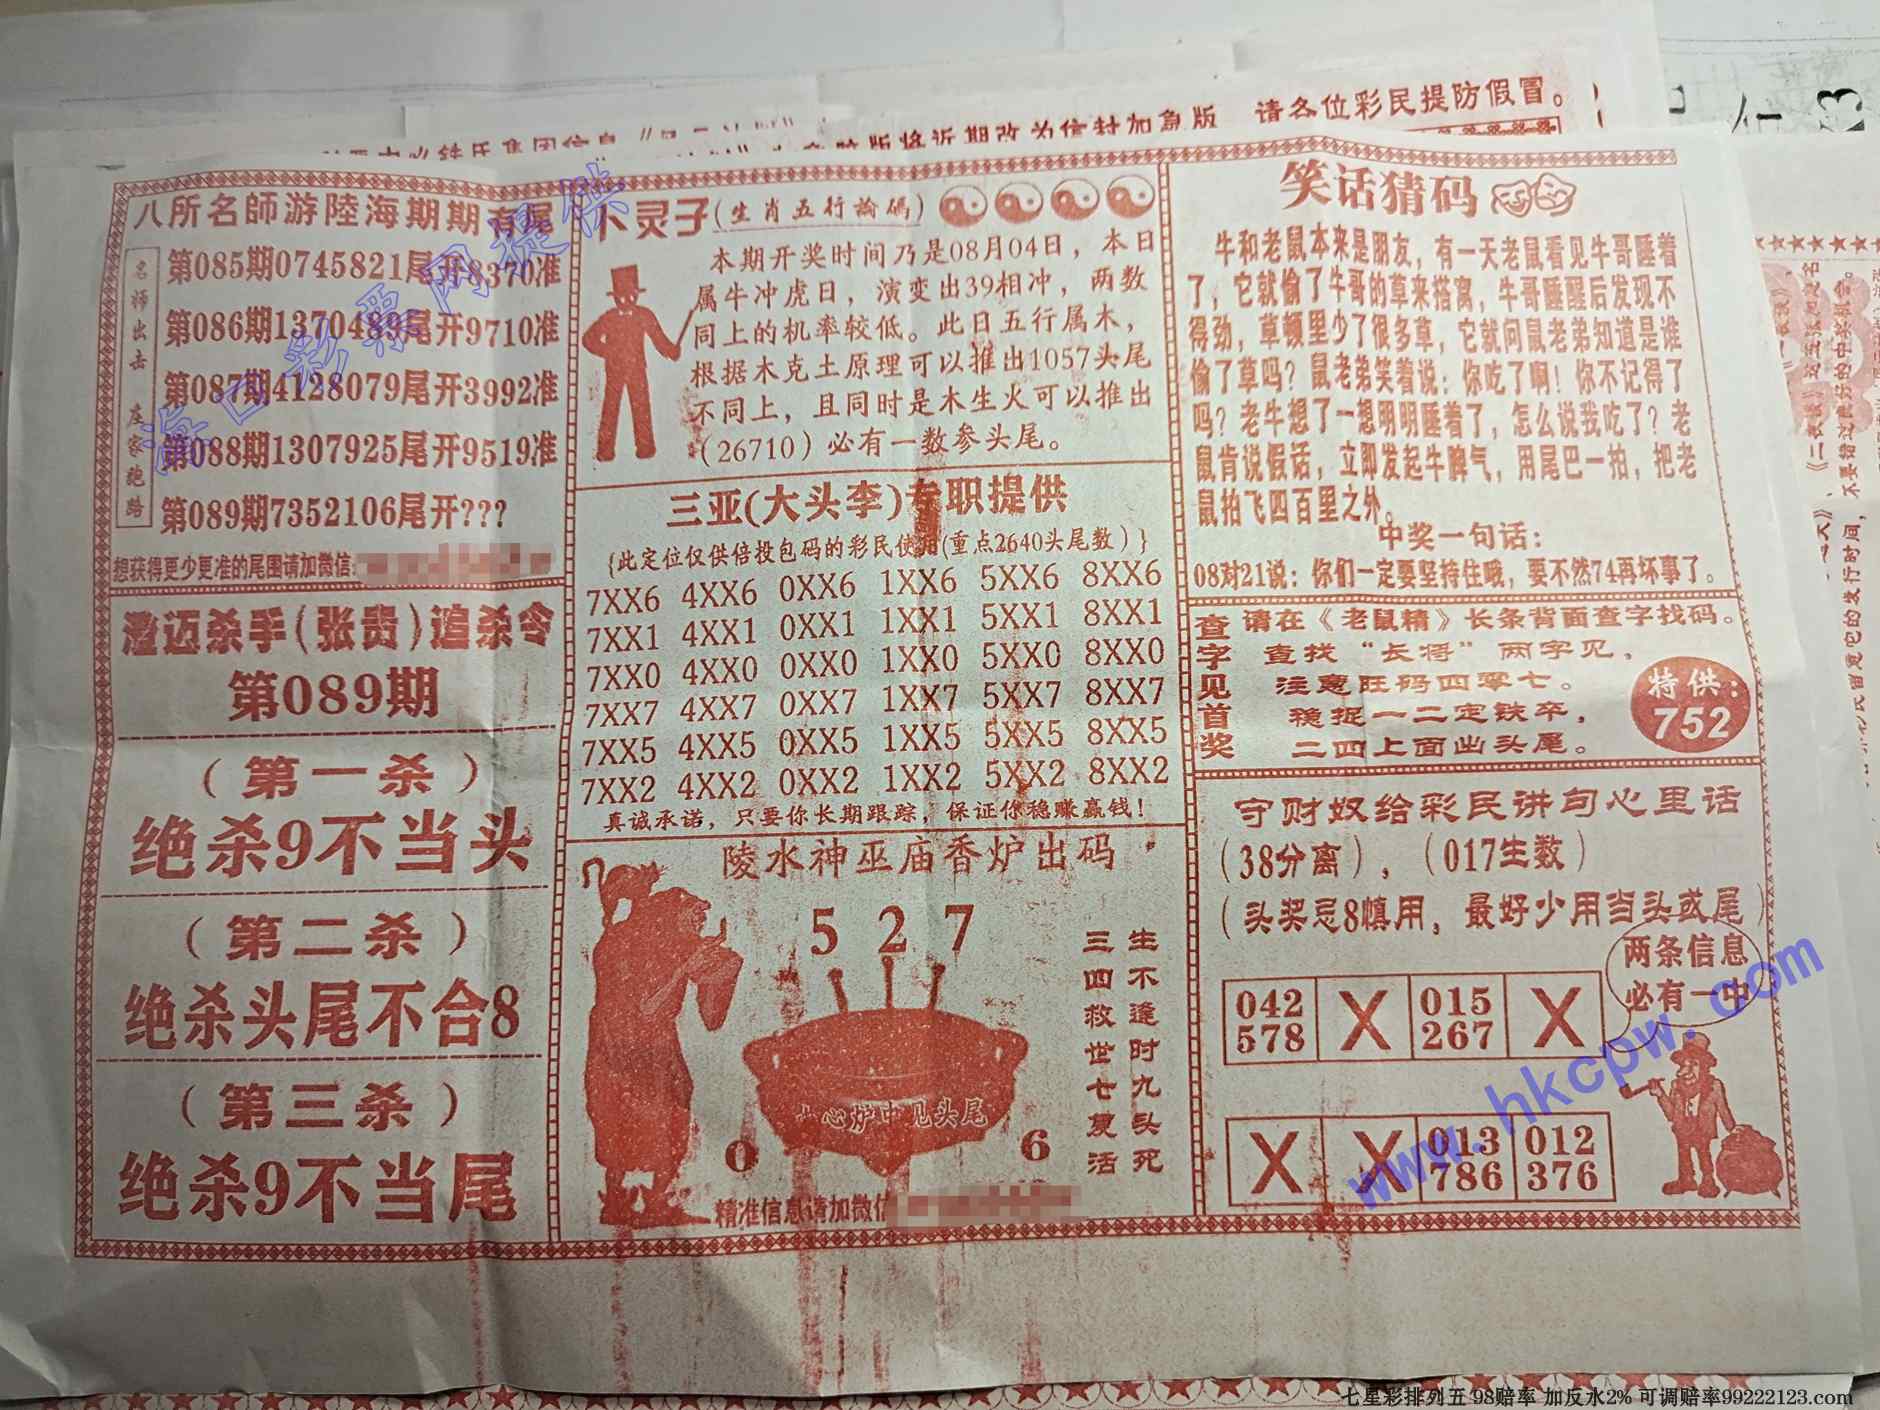 请各位彩民提防假冒。
八所名師游陸海期期有尾
名师出击 庄家跑路
第085期0745821尾开8370准
第086期1370489尾开9710准
第087期4128079尾开3992准
第088期1307925尾开9519准
第089期7352106尾开???
想获得更少更准的尾围请加微信:
澄迈杀手(张贵)追杀令
第089期
(第一杀)
绝杀9不当头
(第二杀)
绝杀头尾不合8
(第三杀)
绝杀9不当尾
卜灵子(生肖五行論碼)
本期开奖时间乃是08月04日，本日
属牛冲虎日，演变出39相冲，两数
同上的机率较低。此日五行属木，
根据木克土原理可以推出1057头尾
不同上，且同时是木生火可以推出
（26710）必有一数参头尾。
三亚(大头李)专职提供
{此定位仅供倍投包码的彩民使用(重点2640头尾数)}
7XX6 4XX6 0XX6 1XX6 5XX6 8XX6
7XX1 4XX1 0XX1 1XX1 5XX1 8XX1
7XX0 4XX0 0XX0 1XX0 5XX0 8XX0
7XX7 4XX7 0XX7 1XX7 5XX7 8XX7
7XX5 4XX5 0XX5 1XX5 5XX5 8XX5
7XX2 4XX2 0XX2 1XX2 5XX2 8XX2
真诚承诺，只要你长期跟踪，保证你稳赚赢钱！
陵水神巫庙香炉出码
5 2 7
生不逢时九头死
三四救世七复活
中心炉中见头尾
0 6
精准信息请加微信
笑话猜码
牛和老鼠本来是朋友，有一天老鼠看见牛哥睡着
了，它就偷了牛哥的草来搭窝，牛哥睡醒后发现不
得劲，草顿里少了很多草，它就问鼠老弟知道是谁
偷了草吗？鼠老弟笑着说：你吃了啊！你不记得了
吗？老牛想了一想明明睡着了，怎么说我吃了？老
鼠肯说假话，立即发起牛脾气，用尾巴一拍，把老
鼠拍飞四百里之外。
中奖一句话：
08对21说：你们一定要坚持住哦，要不然74再坏事了。
查字见首奖
请在《老鼠精》长条背面查字找码。
查找“长将”两字见，
注意旺码四零七。
稳捉一二定铁卒，
二四上面出头尾。
特供：
752
守财奴给彩民讲句心里话
(38分离)，(017生数)
(头奖忌8慎用，最好少用当头或尾)
两条信息
必有一中
042 578 X 015 267 X
X X 013 786 012 376
海口彩票网提供
www.hkcpw.com
七星彩排列五 98赔率 加反水2% 可调赔率99222123.com